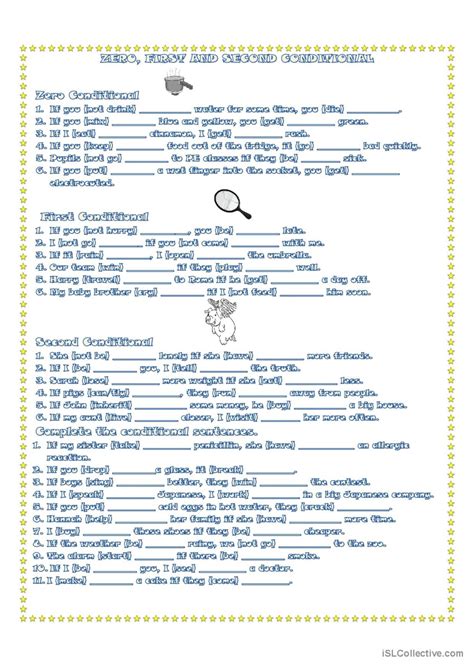 ZERO, FIRST AND SECOND CONDITIONAL
Zero Conditional
1. If you (not drink) ________ water for some time, you (die) ________.
2. If you (mix) ________ blue and yellow, you (get) ________ green.
3. If I (eat) ________ cinnamon, I (get) ________ rash.
4. If you (keep) ________ food out of the fridge, it (go) ________ bad quickly.
5. Pupils (not go) ________ to PE classes if they (be) ________ sick.
6. If you (put) ________ a wet finger into the socket, you (get) ________
electrocuted.
First Conditional
1. If you (not hurry) ________, you (be) ________ late.
2. I (not go) ________ if you (not come) ________ with me.
3. If it (rain) ________, I (open) ________ the umbrella.
4. Our team (win) ________ if they (play) ________ well.
5. Harry (travel) ________ to Rome if he (get) ________ a day off.
6. My baby brother (cry) ________ if I (not feed) ________ him soon.
Second Conditional
1. She (not be) ________ lonely if she (have) ________ more friends.
2. If I (be) ________ you, I (tell) ________ the truth.
3. Sarah (lose) ________ more weight if she (eat) ________ less.
4. If pigs (can/fly) ________, they (run) ________ away from people.
5. If John (inherit) ________ some money, he (buy) ________ a big house.
6. If my aunt (live) ________ closer, I (visit) ________ her more often.
Complete the conditional sentences.
1. If my sister (take) ________ penicillin, she (have) ________ an allergic
reaction.
2. If you (drop) ________ a glass, it (break) ________.
3. If boys (sing) ________ better, they (win) ________ the contest.
4. If I (speak) ________ Japanese, I (work) ________ in a big Japanese company.
5. If you (put) ________ cold eggs in hot water, they (crack) ________.
6. Hannah (help) ________ her family if she (have) ________ time.
7. I (buy) ________ those shoes if they (be) ________ cheaper.
8. If the weather (be) ________ rainy, we (not go) ________ to the zoo.
9. The alarm (start) ________ if there (be) ________ smoke.
10. If I (be) ________ you, I (see) ________ a doctor.
11. I (make) ________ a cake if they (come) ________.
iSLCollective.com